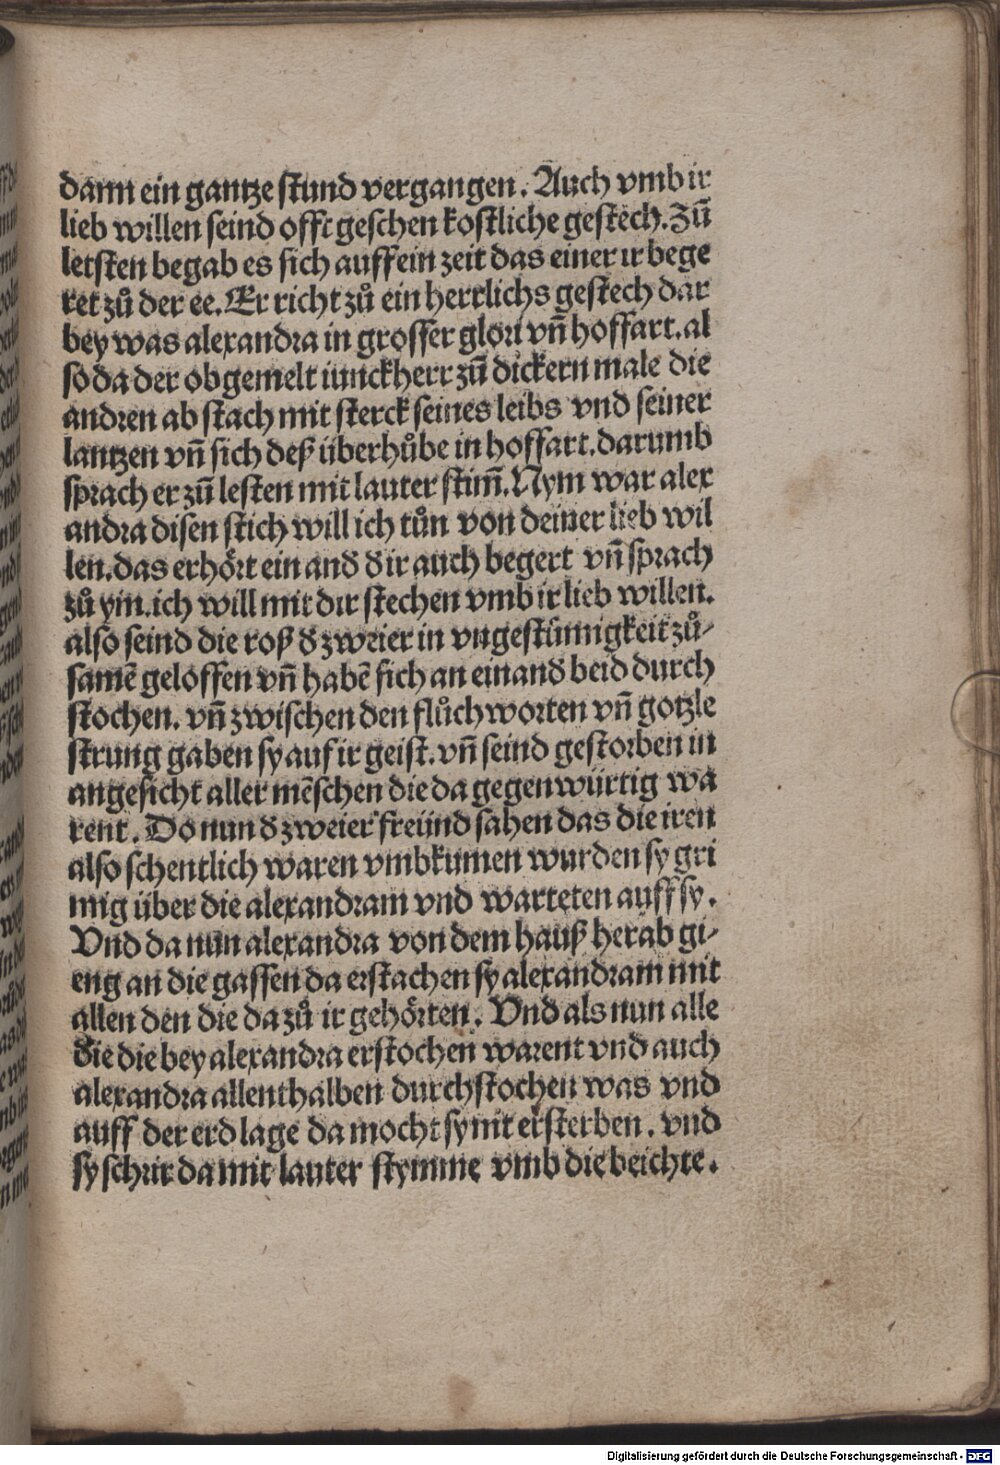 dann ein gantze stund vergangen. Auch vmb ir
lieb willen seind offt geschen kostliche gestech. Zū
letsten begab es sich auff ein zeit das einer ir bege
ret zů der ee. Er richt zů ein herrlichs gestech dar
bey was alexandra in grosser glori vn̄ hoffart. al
so da der obgemelt iunckherr zū dickern male die
andren ab stach mit sterck seines leibs vnd seiner
lantzen vn̄ sich deß überhůbe in hoffart. darumb
sprach er zū lesten mit lauter stim̄. Nym war alex
andra disen stich will ich tůn von deiner lieb wil
len. das erhört ein and̄ d̄ ir auch begert vn̄ sprach
zů ym. ich will mit dir stechen vmb ir lieb willen.
also seind die roß d̄ zweier in vngestümigkeit zů-
samē geloffen vn̄ habē sich an einand̄ beid durch
stochen. vn̄ zwischen den flůchworten vn̄ gotzle
strung gaben sy auf ir geist. vn̄ seind gestorben in
angesicht aller mēschen die da gegenwürtig wa
rent. Do nun d̄ zweier freünd sahen das die iren
also schentlich waren vmbkumen wurden sy gri
mig über die alexandram vnd warteten auff sy.
Vnd da nun alexandra von dem hauß herab gi-
eng an die gassen da erstachen sy alexandram mit
allen den die da zů ir gehörten. Vnd als nun alle
die die bey alexandra erstochen warent vnd auch
alexandra allenthalben durchstochen was vnd
auff der erd lage da mocht sy nit ersterben. vnd
sy schrir da mit lauter stymme vmb die beichte.
Digitalisierung gefördert durch die Deutsche Forschungsgemeinschaft - DFG